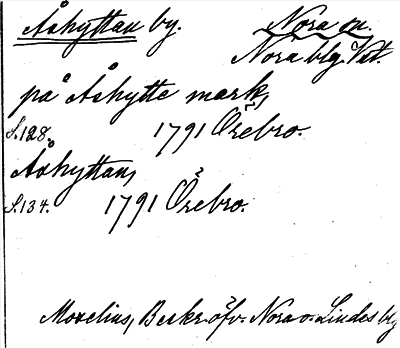 Åshyttan by. Nora sn.
Nora blg. Väst.
på Åshytte mark,
S.128. 1791 Örebro.
Åshyttan,
S.134. 1791 Örebro.
Moxelius, Beskr. öfv. Nora o. Lindes blg